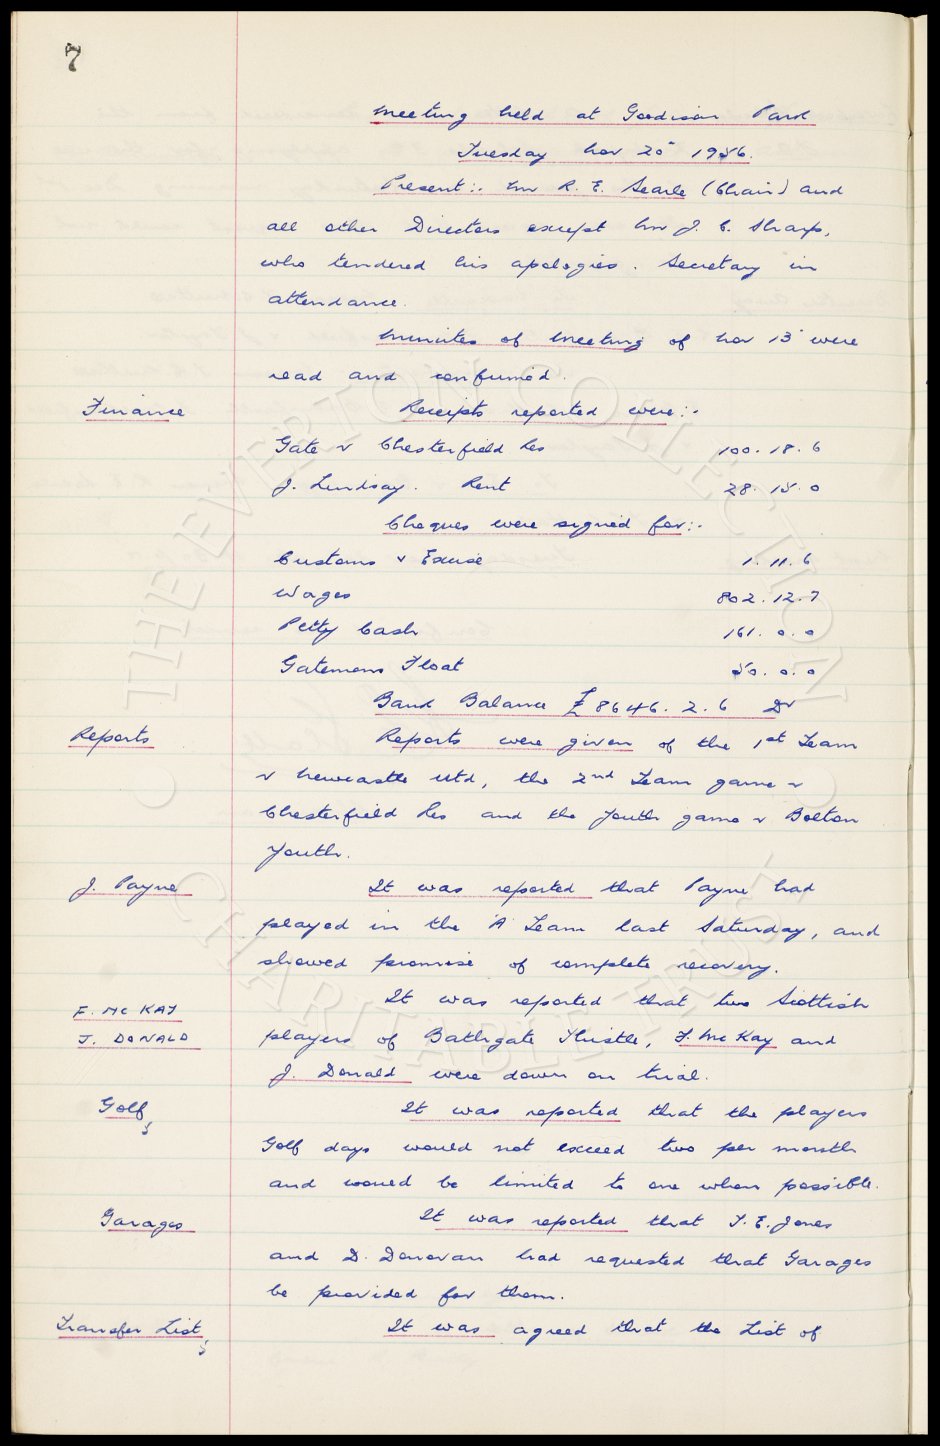 7
Meeting held at Goodison Park
Tuesday Nov 20" 1956.
Present:- Mr R. E. Searle (Chair) and
all other Directors except Mr J. C. Sharp,
who tendered his apologies. Secretary in
attendance.
Minutes of Meeting of Nov 13" were
read and confirmed.
Finance Receipts reported were:-
Gate v Chesterfield Res 100. 18. 6
J. Lindsay. Rent 28. 15. 0
Cheques were signed for:-
Customs & Excise 1. 11. 6
Wages 802. 12. 7
Petty Cash 161. 0. 0
Gatemens Float 50. 0. 0
Bank Balance £8646. 2. 6 Dr
Reports Reports were given of the 1st Team
v Newcastle Utd, the 2nd Team game v
Chesterfield Res and the Youth game v Bolton
Youth.
J. Payne It was reported that Payne had
played in the 'A' Team last Saturday, and
showed promise of complete recovery.
It was reported that two Scottish
F. McKAY
players of Bathgate Thistle, F. McKay and
J. DONALD
J. Donald were down on trial.
Golf It was reported that the players
Golf days would not exceed two per month
and would be limited to one when possible.
Garages It was reported that T. E. Jones
and D. Donovan had requested that Garages
be provided for them.
Transfer List It was agreed that the List of
THE EVERTON COLLECTION
CHARITABLE TRUST